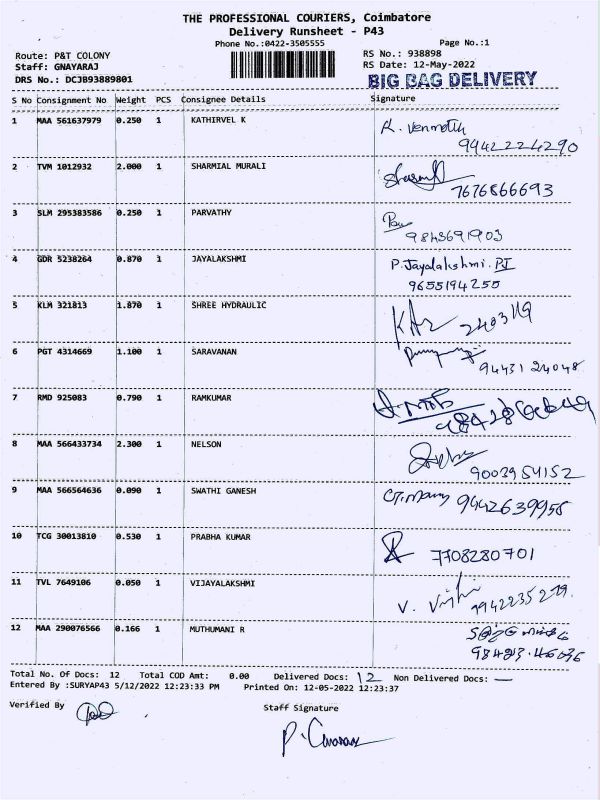 THE PROFESSIONAL COURIERS, Coimbatore
Delivery Runsheet - P43
Phone No.:0422-3505555 Page No.:1
Route: P&T COLONY RS No.: 938898
Staff: GNAYARAJ RS Date: 12-May-2022
DRS No.: DCJB93889801 BIG BAG DELIVERY
S No Consignment No Weight PCS Consignee Details Signature
1 MAA 561637979 0.250 1 KATHIRVEL K K.
9942224290
2 TVM 1012932 2.000 1 SHARMIAL MURALI
7676866693
3 SLM 295383586 0.250 1 PARVATHY
9843691903
4 GDR 5238264 0.870 1 JAYALAKSHMI P. Jayalakshmi.
9655194255
5 KLM 321813 1.870 1 SHREE HYDRAULIC
6 PGT 4314669 1.100 1 SARAVANAN
9443124048
7 RMD 925083 0.790 1 RAMKUMAR
8 MAA 566433734 2.300 1 NELSON
9003954152
9 MAA 566564636 0.090 1 SWATHI GANESH
9442639955
10 TCG 30013810 0.530 1 PRABHA KUMAR 7708280701
11 TVL 7649106 0.050 1 VIJAYALAKSHMI V. Vijhi
12 MAA 290076566 0.166 1 MUTHUMANI R
Total No. Of Docs: 12 Total COD Amt: 0.00 Delivered Docs: 12 Non Delivered Docs: —
Entered By :SURYAP43 5/12/2022 12:23:33 PM Printed On: 12-05-2022 12:23:37
Verified By Staff Signature